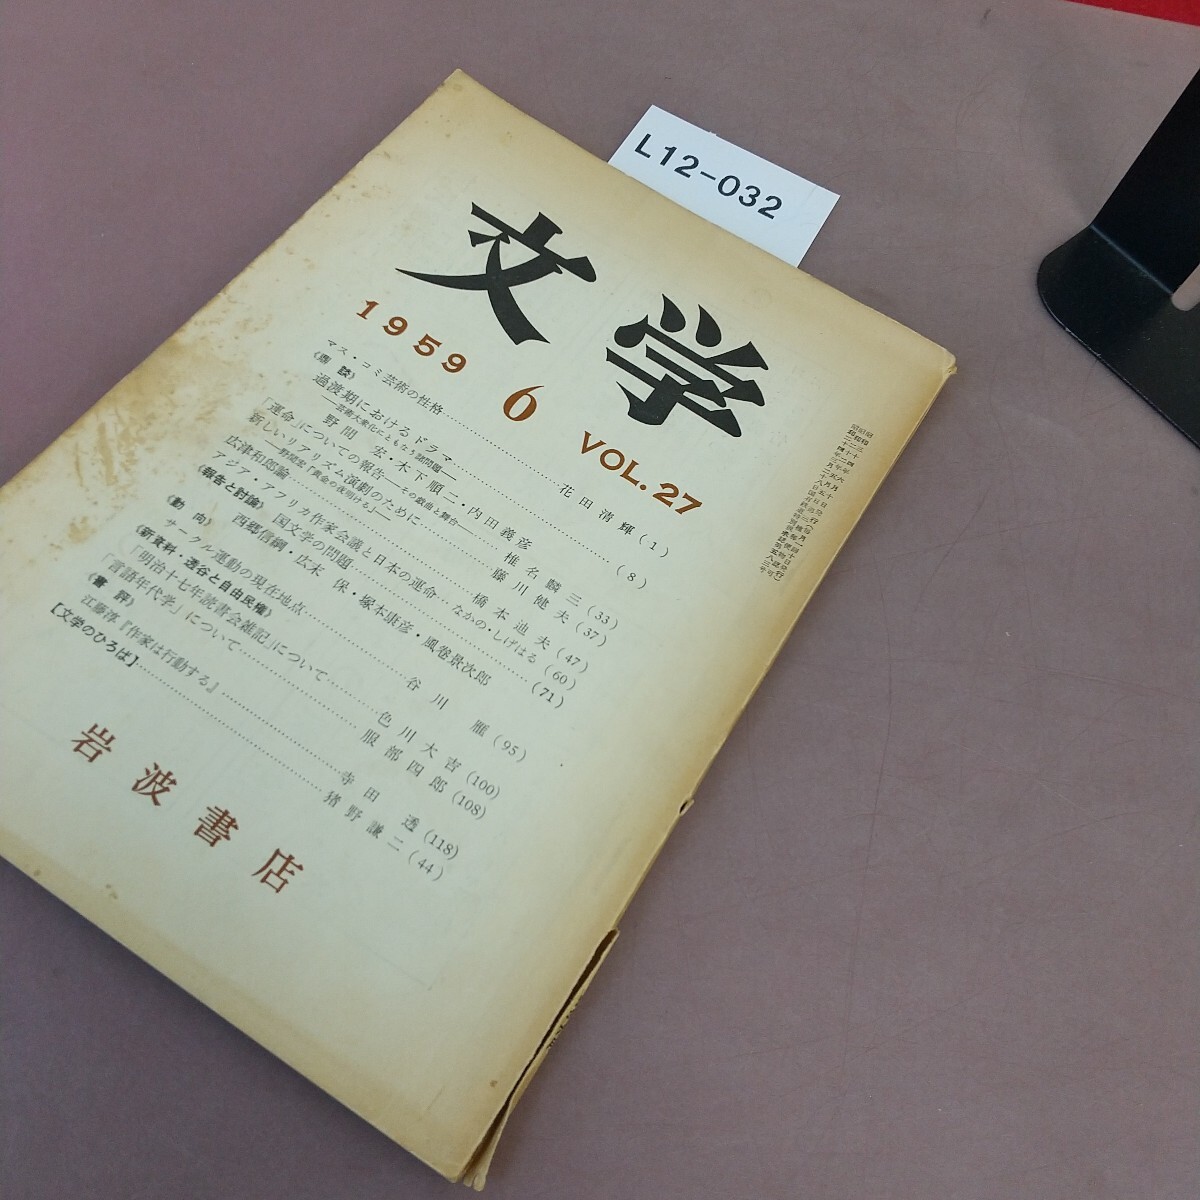 L12-032
文学
1959 6 VOL. 27
マス・コミ芸術の性格……花田清輝(1)
《面談》
過渡期におけるドラマ……(8)
―芸術大衆化にともなう諸問題―
野間 宏・木下順二・内田義彦
「運命」についての報告―その戯曲と舞台―……椎名麟三(33)
新しいリアリズム演劇のために……藤川健夫(37)
―野間宏「黄金の夜明ける」―
広津和郎論……橋本迪夫(47)
アジア・アフリカ作家会議と日本の運命…なかの・しげはる(60)
《報告と討論》 国文学の問題……(71)
西郷信綱・広末 保・塚本康彦・風巻景次郎
《動 向》
サークル運動の現在地点……谷川 雁(95)
《新資料・透谷と自由民権》
「明治十七年読書会雑記」について……色川大吉(100)
「言語年代学」について……服部四郎(108)
《書 評》
江藤淳『作家は行動する』……寺田 透(118)
[文学のひろば]……猪野謙二(44)
岩波書店